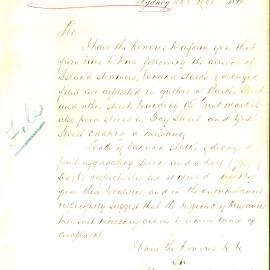 Sydney
Sir
I have the honor to inform you that
from time to time following the arrival of
Island steamers, banana stalks & decayed
fruit are deposited in gutters in Barker Street
and other Streets surrounding the Fruit Markets
also from stores in Hay Street and
Street creating a nuisance.
Loads of banana stalks & decayed
fruit aggregating seven and a half (7½) &
respectively are removed weekly
from these localities, and in the circumstances
respectfully suggest that the Inspector of Nuisances
take such necessary action to remove cause of
complaint.
I have the honour to be
Sir
File